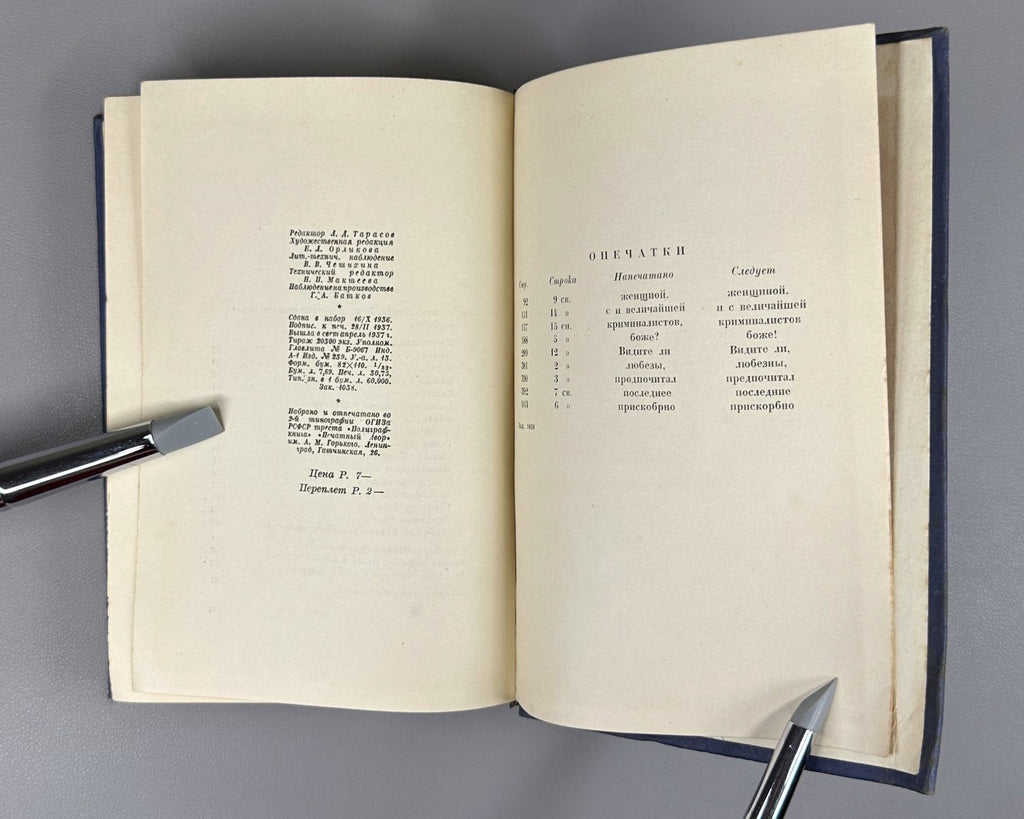 Редактор Л. Д. Тарасов
Художественная редакция
Е. Л. Орликова
Лит.-технич. наблюдение
В. В. Чешихина
Технический редактор
Н. П. Мактеева
Наблюдение на производстве
Г. А. Батков
*
Сдана в набор 16/X 1936.
Подпис. к печ. 28/II 1937.
Вышла в свет апрель 1937 г.
Тираж 20300 экз. Уполном.
Главлита № Б-9067 Инд.
А-1 Изд. № 259. У.-а. л. 13.
Форм. бум. 82×110. 1/32-
Бум. л. 7,69. Печ. л. 30,75,
Тип. зн. в 1 бум. л. 60.000.
Зак. 1038.
*
Набрано и отпечатано во
2-й типографии ОГИЗа
РСФСР треста «Полиграф-
книга» «Печатный Двор»
им. А. М. Горького. Ленин-
град, Гатчинская, 26.
Цена Р. 7—
Переплет Р. 2—
ОПЕЧАТКИ
Стр. Строка Напечатано Следует
92 9 св. женщиной. женщиной.
14 » с и величайшей и с величайшей
15 сн. криминалистов, криминалистов
5 » боже? боже!
12 » Видите ли Видите ли,
2 » любезы, любезны,
3 » продпочитал предпочитал
7 сн. последнее последние
6 » прискобрно прискорбно
Зак. 1038